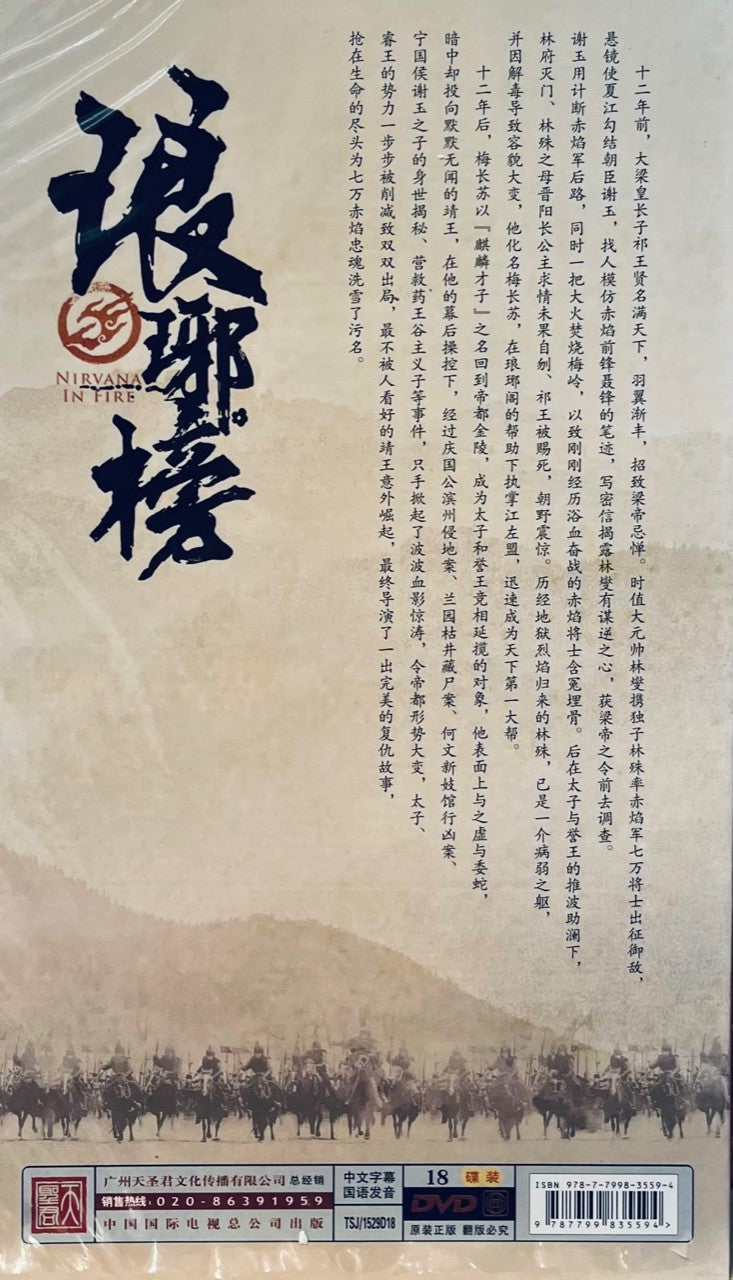 十二年前，大梁皇长子祁王贤名满天下，羽翼渐丰，招致梁帝忌惮。时值大元帅林燮携独子林殊率赤焰军七万将士出征御敌，
悬镜使夏江勾结朝臣谢玉，找人模仿赤焰前锋聂锋的笔迹，写密信揭露林燮有谋逆之心，获梁帝之令前去调查。
谢玉用计断赤焰军后路，同时一把大火焚烧梅岭，以致刚刚经历浴血奋战的赤焰将士含冤埋骨。后在太子与誉王的推波助澜下，
林府灭门、林殊之母晋阳长公主求情未果自刎、祁王被赐死，朝野震惊。历经地狱烈焰归来的林殊，已是一介病弱之躯，
并因解毒导致容貌大变，他化名梅长苏，在琅琊阁的帮助下执掌江左盟，迅速成为天下第一大帮。
十二年后，梅长苏以『麒麟才子』之名回到帝都金陵，成为太子和誉王竞相延揽的对象，他表面上与之虚与委蛇，
暗中却投向默默无闻的靖王，在他的幕后操控下，经过庆国公滨州侵地案、兰园枯井藏尸案、何文新妓馆行凶案、
宁国侯谢玉之子的身世揭秘、营救药王谷主义子等事件，只手掀起了波波血影惊涛，令帝都形势大变，太子、
睿王的势力一步步被削减致双双出局，最不被人看好的靖王意外崛起，最终导演了一出完美的复仇故事，
抢在生命的尽头为七万赤焰忠魂洗雪了污名。
琅琊榜
NIRVANA
IN FIRE
天圣君
广州天圣君文化传播有限公司 总经销
销售热线：020-86391959
中国国际电视总公司出版
中文字幕
国语发音
TSJ/1529D18
18 碟装
DVD
原装正版 翻版必究
ISBN 978-7-7998-3559-4
9 787799 835594 >